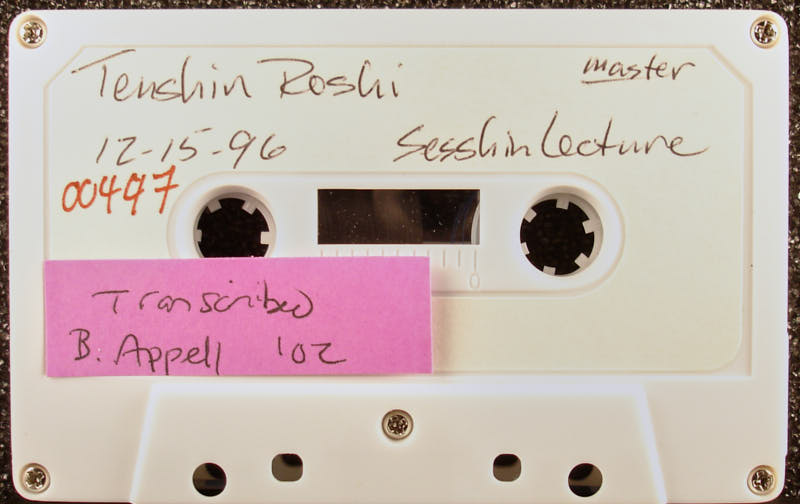 Tenshin Roshi
master
12-15-96 Sesshin Lecture
00497
0
Transcribed
B. Appell '02